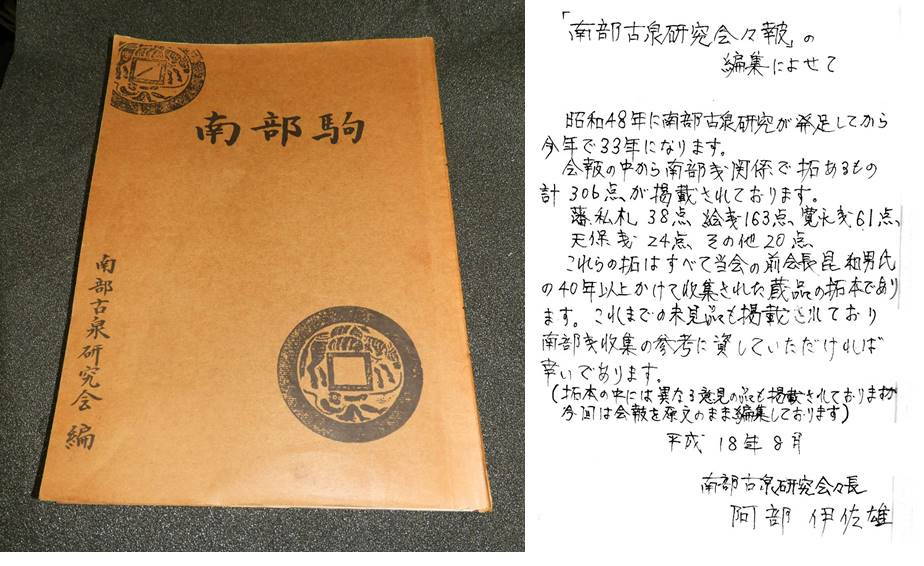 南部駒
南部古泉研究会 編
「南部古泉研究会々報」の
編集によせて
昭和48年に南部古泉研究が発足してから
今年で33年になります。
会報の中から南部銭関係で拓あるもの
計 306点が掲載されております。
藩、私札 38点、絵銭163点、寛永銭61点、
天保銭 24点、その他20点、
これらの拓はすべて当会の前会長昆和男氏
の40年以上かけて収集された蔵品の拓本であり
ます。これまでの未見品も掲載されており
南部銭収集の参考に資していただければ
幸いであります。
(拓本の中には異なる意見の品も掲載されておりますが
今回は会報を原文のまま編集しております)
平成 18年8月
南部古泉研究会々長
阿部 伊佐雄